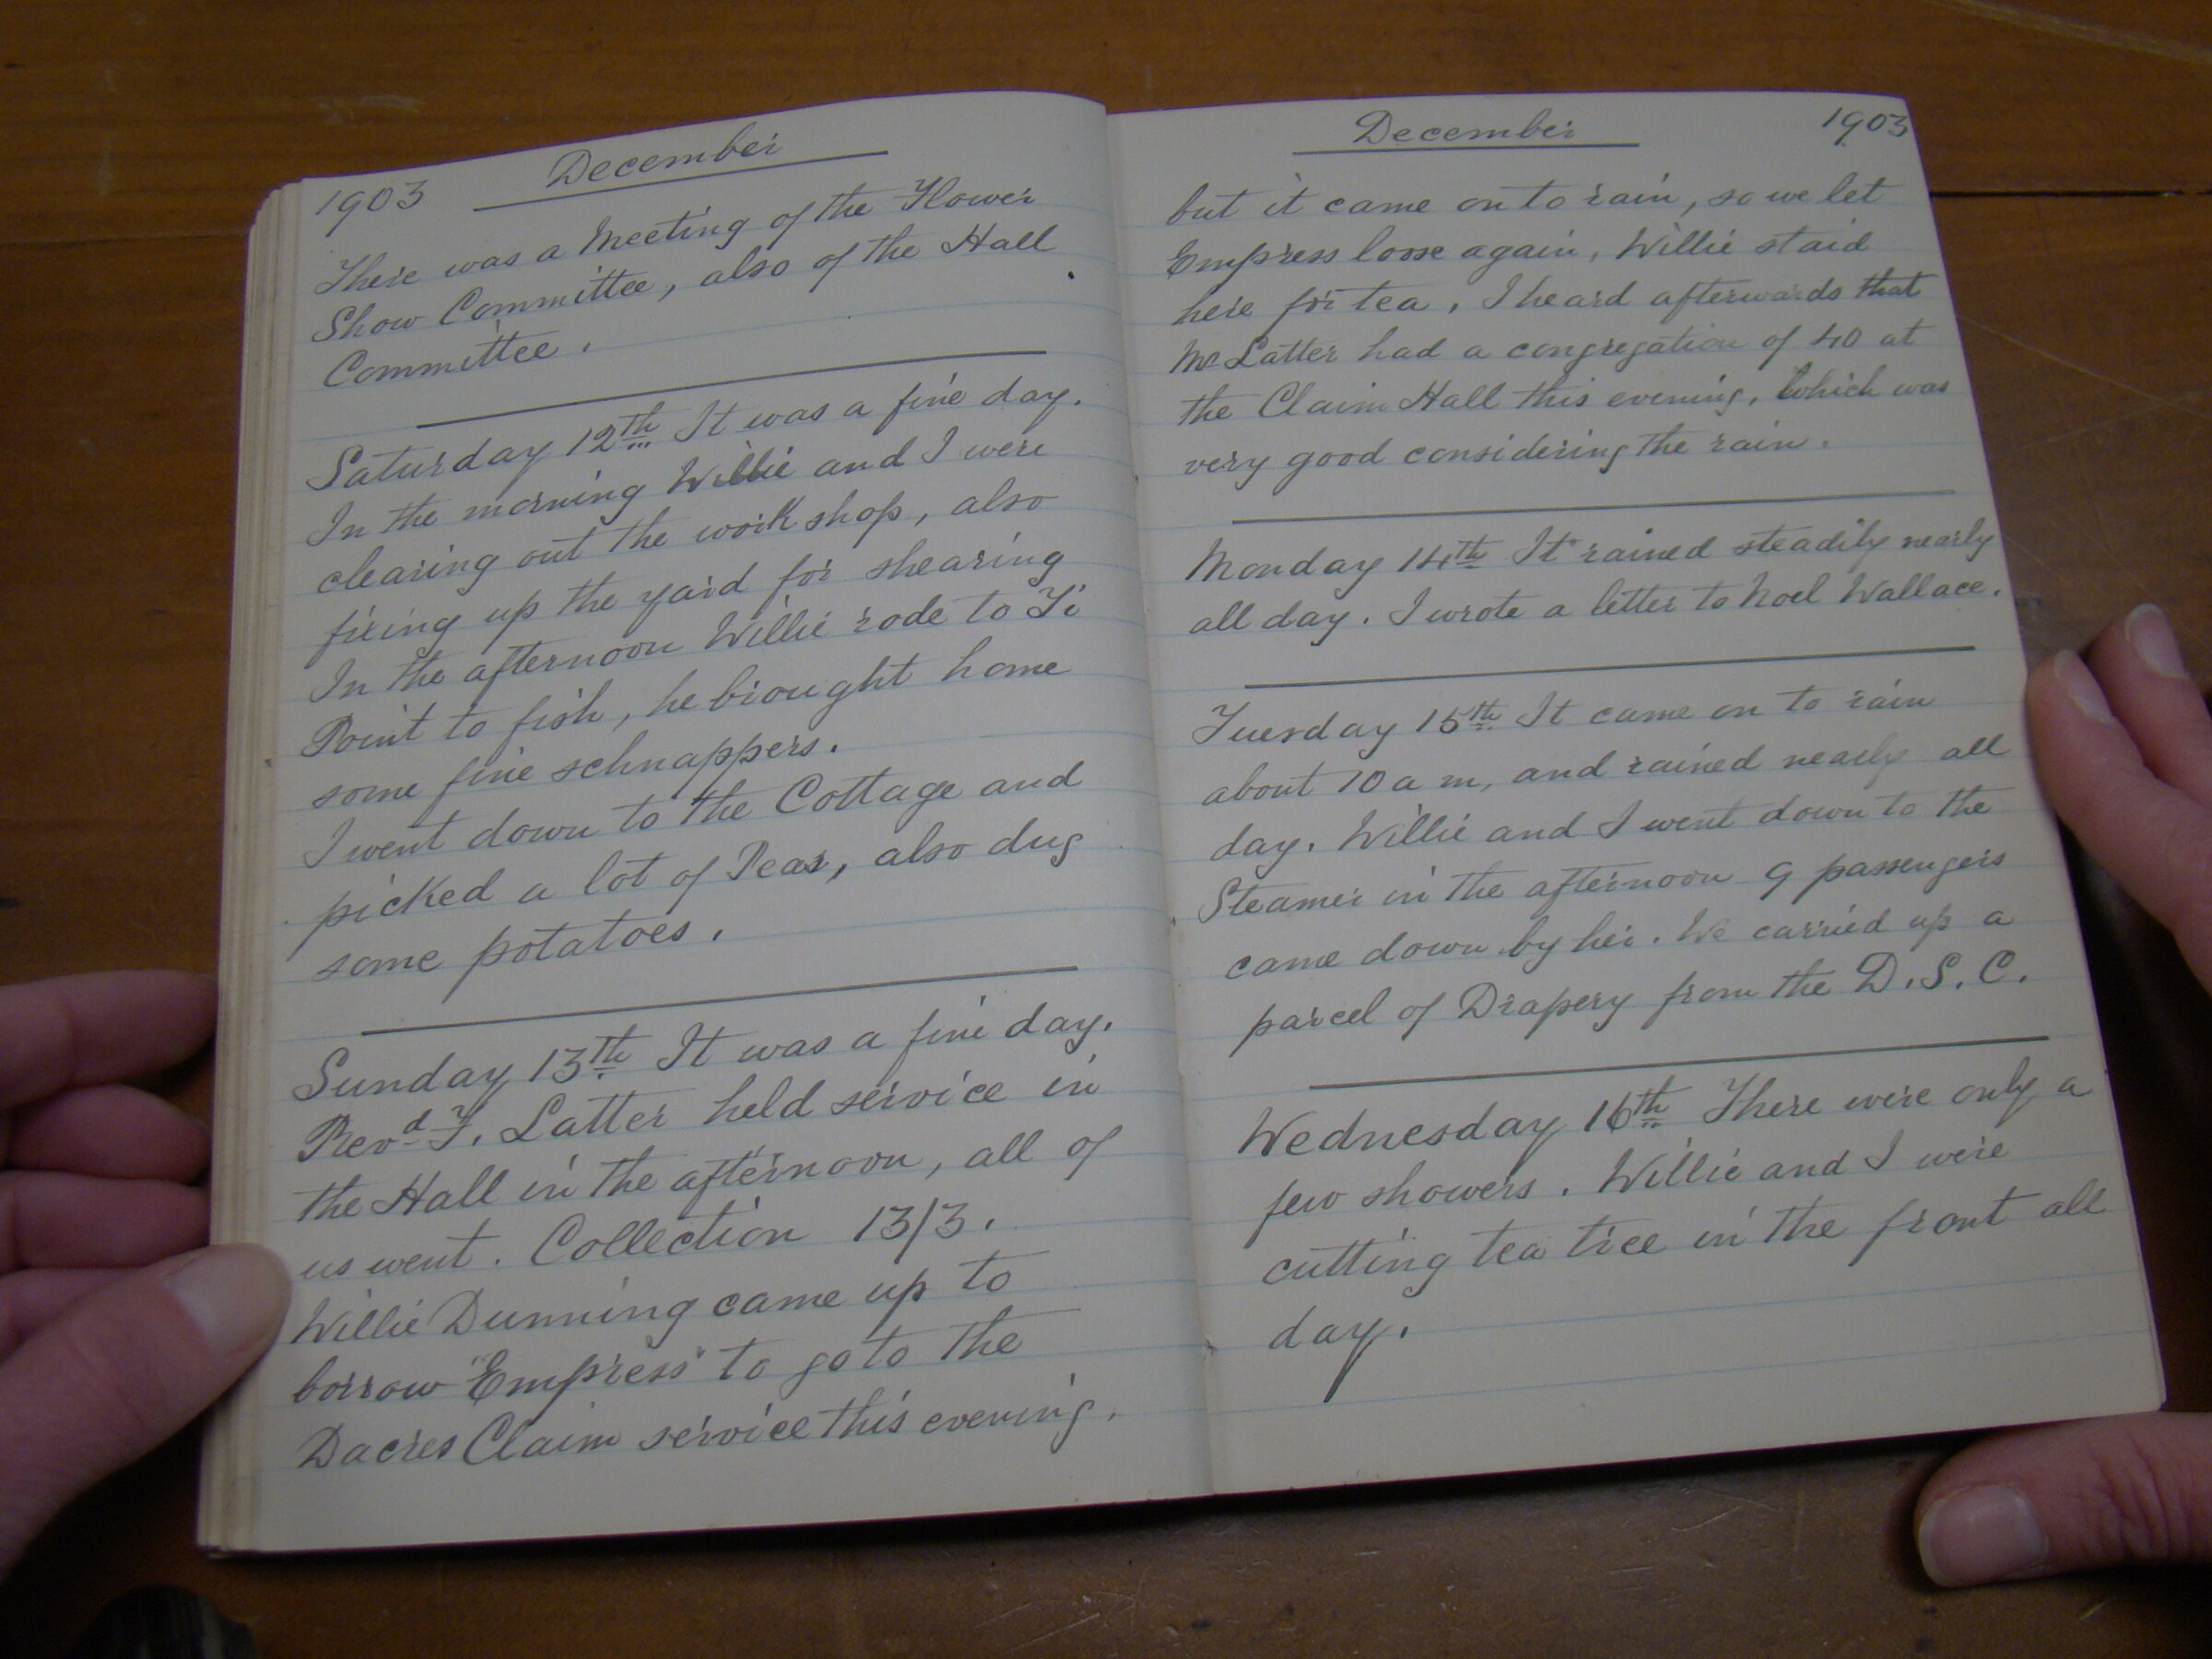 1903 December
There was a Meeting of the Flower
Show Committee, also of the Hall
Committee.
Saturday 12th It was a fine day.
In the morning Willie and I were
clearing out the work shop, also
fixing up the yard for shearing
In the afternoon Willie rode to Ti
Point to fish, he brought home
some fine schnappers.
I went down to the Cottage and
picked a lot of Peas, also dug
some potatoes.
Sunday 13th It was a fine day.
Revd F. Latter held service in
the Hall in the afternoon, all of
us went. Collection 13/3.
Willie Dunning came up to
borrow "Empress" to go to the
Dacres Claim service this evening.
December 1903
but it came on to rain, so we let
Empress loose again, Willie staid
here for tea, I heard afterwards that
Mr Latter had a congregation of 40 at
the Claim Hall this evening, which was
very good considering the rain.
Monday 14th It rained steadily nearly
all day. I wrote a letter to Noel Wallace.
Tuesday 15th It came on to rain
about 10 a m, and rained nearly all
day. Willie and I went down to the
Steamer in the afternoon 9 passengers
came down by her. We carried up a
parcel of Drapery from the D.S.C.
Wednesday 16th There were only a
few showers. Willie and I were
cutting tea tree in the front all
day.